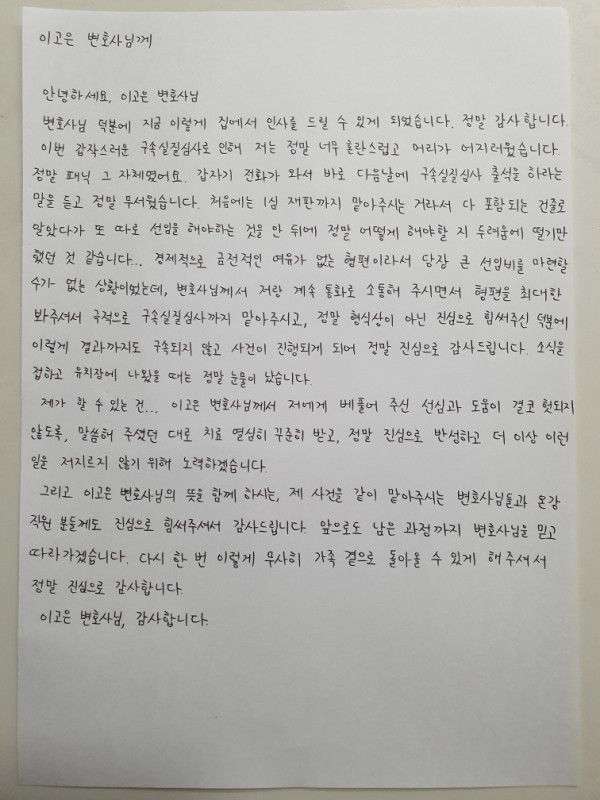 이고은 변호사님께
안녕하세요, 이고은 변호사님
변호사님 덕분에 지금 이렇게 집에서 인사를 드릴 수 있게 되었습니다. 정말 감사합니다.
이번 갑작스러운 구속실질심사로 인해 저는 정말 너무 혼란스럽고 머리가 어지러웠습니다.
정말 패닉 그 자체였어요. 갑자기 전화가 와서 바로 다음날에 구속실질심사 출석을 하라는
말을 듣고 정말 무서웠습니다. 처음에는 1심 재판까지 맡아주시는 거라서 다 포함되는 건줄로
알았다가 또 따로 선임을 해야하는 것을 안 뒤에 정말 어떻게 해야할 지 두려움에 떨기만
했던 것 같습니다... 경제적으로 금전적인 여유가 없는 형편이라서 당장 큰 선임비를 마련할
수가 없는 상황이었는데, 변호사님께서 저랑 계속 통화로 소통해 주시면서 형편을 최대한
봐주셔서 극적으로 구속실질심사까지 맡아주시고, 정말 형식상이 아닌 진심으로 힘써주신 덕분에
이렇게 결과까지도 구속되지 않고 사건이 진행되게 되어 정말 진심으로 감사드립니다. 소식을
접하고 유치장에 나왔을 때는 정말 눈물이 났습니다.
제가 할 수 있는 건... 이고은 변호사님께서 저에게 베풀어 주신 선심과 도움이 결코 헛되지
않도록, 말씀해 주셨던 대로 치료 열심히 꾸준히 받고, 정말 진심으로 반성하고 더 이상 이런
일을 저지르지 않기 위해 노력하겠습니다.
그리고 이고은 변호사님의 뜻을 함께 하시는, 제 사건을 같이 맡아주시는 변호사님들과 온강
직원 분들께도 진심으로 힘써주셔서 감사드립니다. 앞으로도 남은 과정까지 변호사님을 믿고
따라가겠습니다. 다시 한 번 이렇게 무사히 가족 곁으로 돌아올 수 있게 해주셔서
정말 진심으로 감사합니다.
이고은 변호사님, 감사합니다.